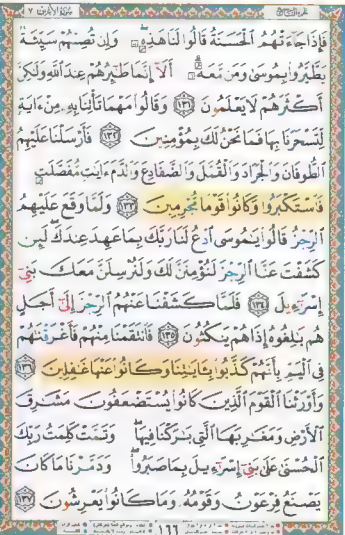 سُورَةُ الأَعْرَافِ ٧
فَإِذَا جَآءَتْهُمُ ٱلْحَسَنَةُ قَالُوا۟ لَنَا هَٰذِهِۦ ۖ وَإِن تُصِبْهُمْ سَيِّئَةٌ
يَطَّيَّرُوا۟ بِمُوسَىٰ وَمَن مَّعَهُۥٓ ۗ أَلَآ إِنَّمَا طَٰٓئِرُهُمْ عِندَ ٱللَّهِ وَلَٰكِنَّ
أَكْثَرَهُمْ لَا يَعْلَمُونَ ١٣١ وَقَالُوا۟ مَهْمَا تَأْتِنَا بِهِۦ مِنْ ءَايَةٍ
لِّتَسْحَرَنَا بِهَا فَمَا نَحْنُ لَكَ بِمُؤْمِنِينَ ١٣٢ فَأَرْسَلْنَا عَلَيْهِمُ
ٱلطُّوفَانَ وَٱلْجَرَادَ وَٱلْقُمَّلَ وَٱلضَّفَادِعَ وَٱلدَّمَ ءَايَٰتٍ مُّفَصَّلَٰتٍ
فَٱسْتَكْبَرُوا۟ وَكَانُوا۟ قَوْمًا مُّجْرِمِينَ ١٣٣ وَلَمَّا وَقَعَ عَلَيْهِمُ
ٱلرِّجْزُ قَالُوا۟ يَٰمُوسَى ٱدْعُ لَنَا رَبَّكَ بِمَا عَهِدَ عِندَكَ ۖ لَئِن
كَشَفْتَ عَنَّا ٱلرِّجْزَ لَنُؤْمِنَنَّ لَكَ وَلَنُرْسِلَنَّ مَعَكَ بَنِىٓ
إِسْرَٰٓءِيلَ ١٣٤ فَلَمَّا كَشَفْنَا عَنْهُمُ ٱلرِّجْزَ إِلَىٰٓ أَجَلٍ
هُم بَٰلِغُوهُ إِذَا هُمْ يَنكُثُونَ ١٣٥ فَٱنتَقَمْنَا مِنْهُمْ فَأَغْرَقْنَٰهُمْ
فِى ٱلْيَمِّ بِأَنَّهُمْ كَذَّبُوا۟ بِـَٔايَٰتِنَا وَكَانُوا۟ عَنْهَا غَٰفِلِينَ ١٣٦
وَأَوْرَثْنَا ٱلْقَوْمَ ٱلَّذِينَ كَانُوا۟ يُسْتَضْعَفُونَ مَشَٰرِقَ
ٱلْأَرْضِ وَمَغَٰرِبَهَا ٱلَّتِى بَٰرَكْنَا فِيهَا ۖ وَتَمَّتْ كَلِمَتُ رَبِّكَ
ٱلْحُسْنَىٰ عَلَىٰ بَنِىٓ إِسْرَٰٓءِيلَ بِمَا صَبَرُوا۟ ۖ وَدَمَّرْنَا مَا كَانَ
يَصْنَعُ فِرْعَوْنُ وَقَوْمُهُۥ وَمَا كَانُوا۟ يَعْرِشُونَ ١٣٧
١٦٦